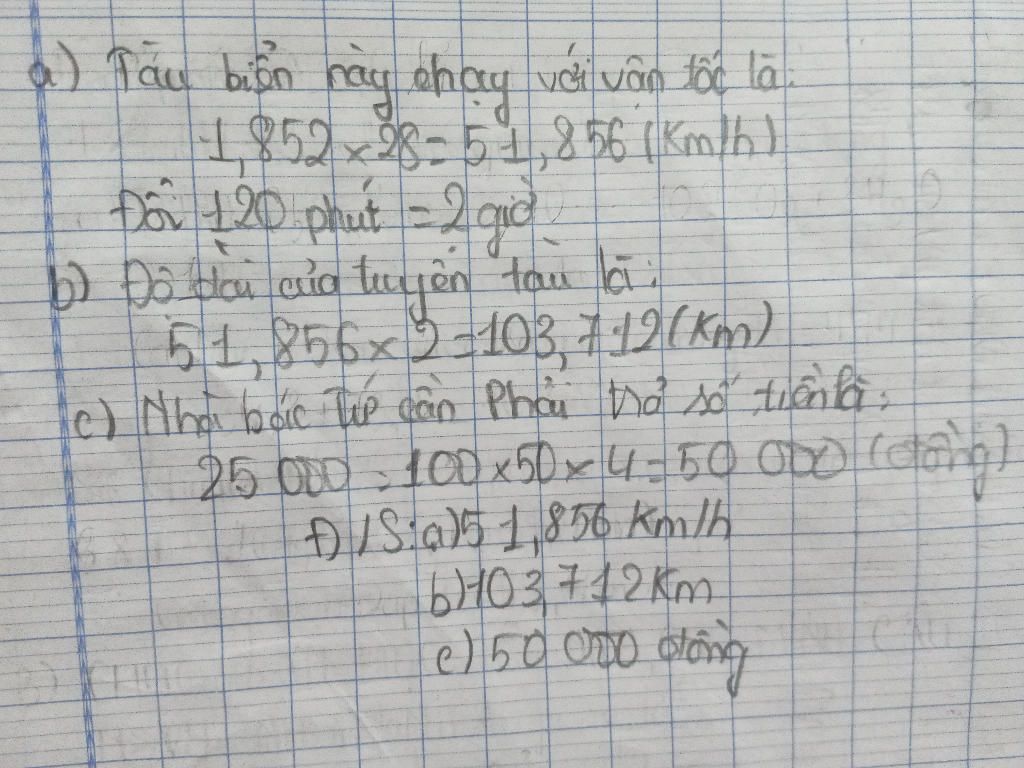 a) Tàu biển này chạy với vận tốc là:
1,852 × 28 = 51,856 (Km/h)
Đổi 120 phút = 2 giờ
b) Độ dài của tuyến tàu là:
51,856 × 2 = 103,712 (Km)
c) Nhà bác Túp cần Phải trả số tiền là:
25 000 : 100 × 50 × 4 = 50 000 (đồng)
Đ/S: a) 51,856 Km/h
b) 103,712 Km
c) 50 000 đồng